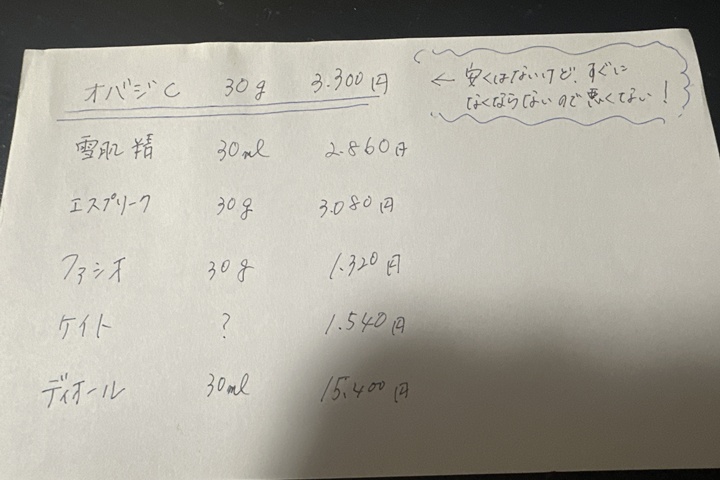 オバジC 30g 3.300円
← 安くはないけど、すぐに
なくならないので悪くない！
雪肌精 30ml 2.860円
エスプリーク 30g 3.080円
ファシオ 30g 1.320円
ケイト ? 1.540円
ディオール 30ml 15.400円